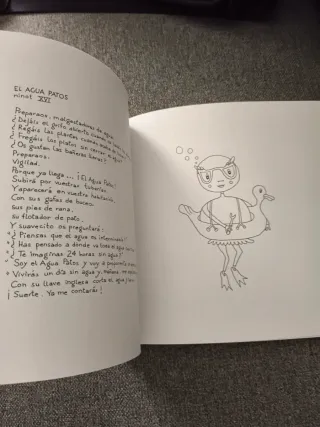 EL AGUA PATOS
ninot XVI
Preparaos, malgastadores de agua.
¿Dejáis el grifo abierto cuando
¿Regáis las plantas cuando
¿Fregáis los platos sin cerrar el
¿Os gustan las bañeras llenas?
Preparaos.
Vigilad.
Porque ya llega... ¡El Agua Patos!
Subirá por vuestras tuberías.
Y aparecerá en vuestra habitación.
Con sus gafas de buceo,
sus pies de rana,
su flotador de pato.
Y suavecito os preguntará:
"¿Piensas que el agua es interminable?
"¿Has pensado a donde va
"¿Te Imaginas 24 horas sin agua?
"Soy el Agua Patos y soy
"Vivirás un día sin agua y, mañana me
Con su llave inglesa corta el agua y
¡Suerte. Ya me contarás!